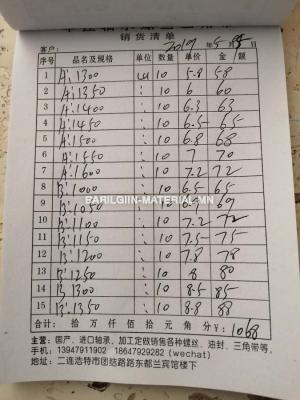 销货清单
客户: 2019年5月
序号 品名及规格 单位 数量 单价 金额
1 A:1300 10 5.8 58
2 A:1350 : 10 6 60
3 A:1400 : 10 6.3 63
4 A:1450 : 10 6.5 65
5 A:1500 : 10 6.8 68
6 A:1550 : 10 7 70
7 A:1600 : 10 7.2 72
8 B:1000 : 10 6.5 65
BARILGIIN-MATERIAL.MN
9 B:1050 : 10 6.9 69
10 B:1100 : 10 7.2 72
11 B:1150 : 10 7.5 75
12 B:1200 : 10 7.8 78
13 B:1250 : 10 8 80
14 B:1300 : 10 8.5 85
15 B:1350 : 10 8.8 88
合计: 拾 万 仟 佰 拾 元 角 分 ¥: 1068
主营: 国产、进口轴承、加工定做销售各种螺丝、油封、三角带等、
手机: 13947911902 18647929282 (wechat)
地址: 二连浩特市团结路路东都兰宾馆楼下